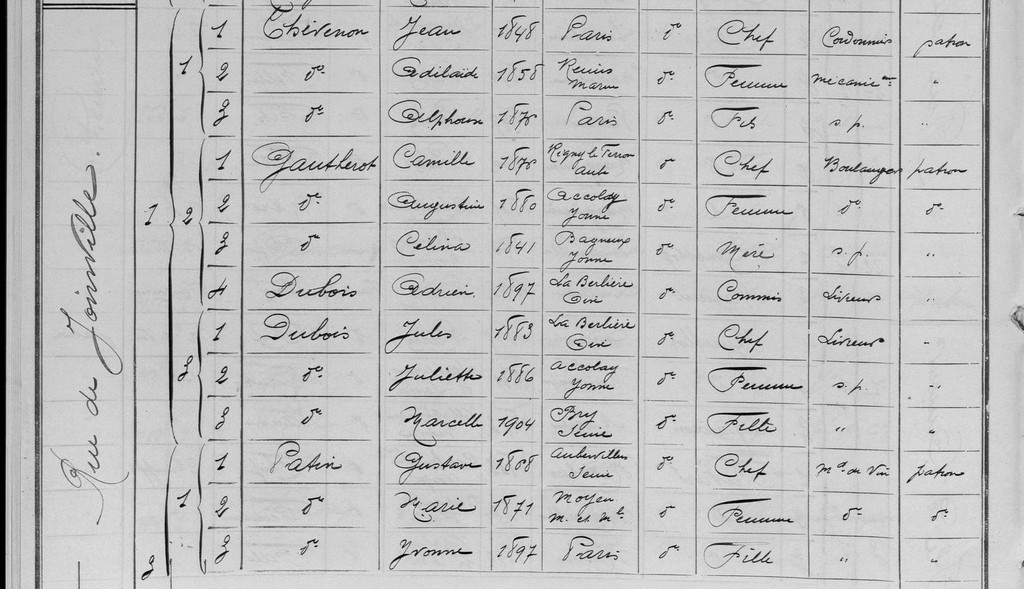 Rue de Joinville.
1 1 1 Thévenon Jean 1848 Paris do Chef Cordonnier patron
2 do Adilaïde 1858 Reims Marne do Femme mécanicienne "
3 do Alphonse 1878 Paris do Fils s.p. "
2 1 Gautherot Camille 1878 Rigny le Ferron Aube do Chef Boulanger patron
2 do Augustine 1880 Accolay Yonne do Femme do do
3 do Célina 1841 Bagneux Yonne do Mère s.p. "
4 Dubois Adrien 1897 La Berlière Oise do Commis Livreur "
3 1 Dubois Jules 1883 La Berlière Oise do Chef Livreur "
2 do Juliette 1886 Accolay Yonne do Femme s.p. "
3 do Marcelle 1904 Bry Seine do Fille " "
3 1 1 Patin Gustave 1868 Aubervilliers Seine do Chef Md de Vin patron
2 do Marie 1871 Moyen M. et Mlle do Femme do do
3 do Yvonne 1897 Paris do Fille " "